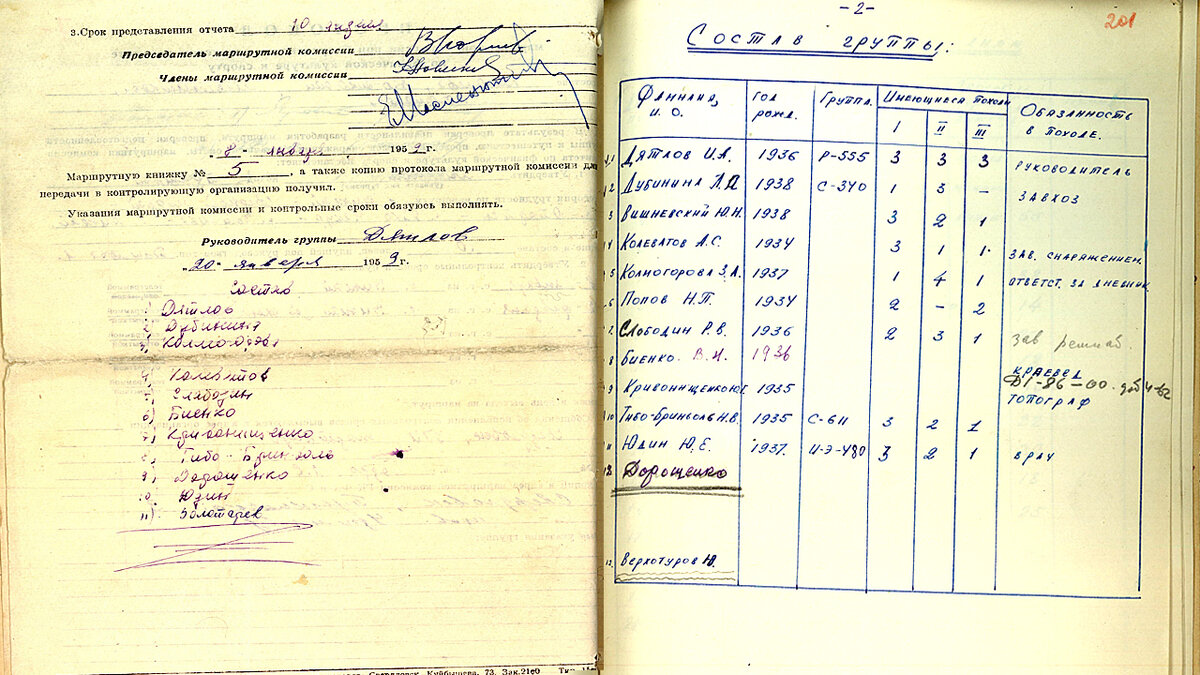 3.Срок представления отчета 10 
Председатель маршрутной комиссии
Члены маршрутной комиссии
"8" января 1959г.
Маршрутную книжку № 5, а также копию протокола маршрутной комиссии для
передачи в контролирующую организацию получил.
Указания маршрутной комиссии и контрольные сроки обязуюсь выполнять.
Руководитель группы Дятлов
"20" января 1959г.
Состав
1) Дятлов
2) Дубинина
3) Колмогорова
4) Колеватов
5) Слободин
6) Биенко
7) Кривонищенко
8) Тибо-Бриньоль
9) Дорошенко
10) Юдин
11) Золотарев
Свердловск, Куйбышева, 73. Зак.21
-2-
201
Состав группы:
Фамилия, И. О. Год рожд. Группа. Имеющиеся походы I II III Обязанность в походе.
1 Дятлов И.А. 1936 Р-555 3 3 3 руководитель
2 Дубинина Л.А 1938 С-340 1 3 – завхоз
3 Вишневский Ю.Н. 1938 3 2 1
4 Колеватов А.С. 1934 3 1 1 зав. снаряжением.
5 Колмогорова З.А. 1937 1 4 1 ответст. за дневник
6 Попов Н.П. 1934 2 – 2
7 Слободин Р.В. 1936 2 3 1 зав ремнаб.
8 Биенко. В.И. 1936 краевед
Д1-86-00. доб 4-62
9 Кривонищенко Ю.Г. 1935 топограф
10 Тибо-Бриньоль Н.В. 1935 С-611 3 2 1
11 Юдин Ю.Е. 1937. И-Э-480 3 2 1 врач
12 Дорошенко
Верхотуров Ю.